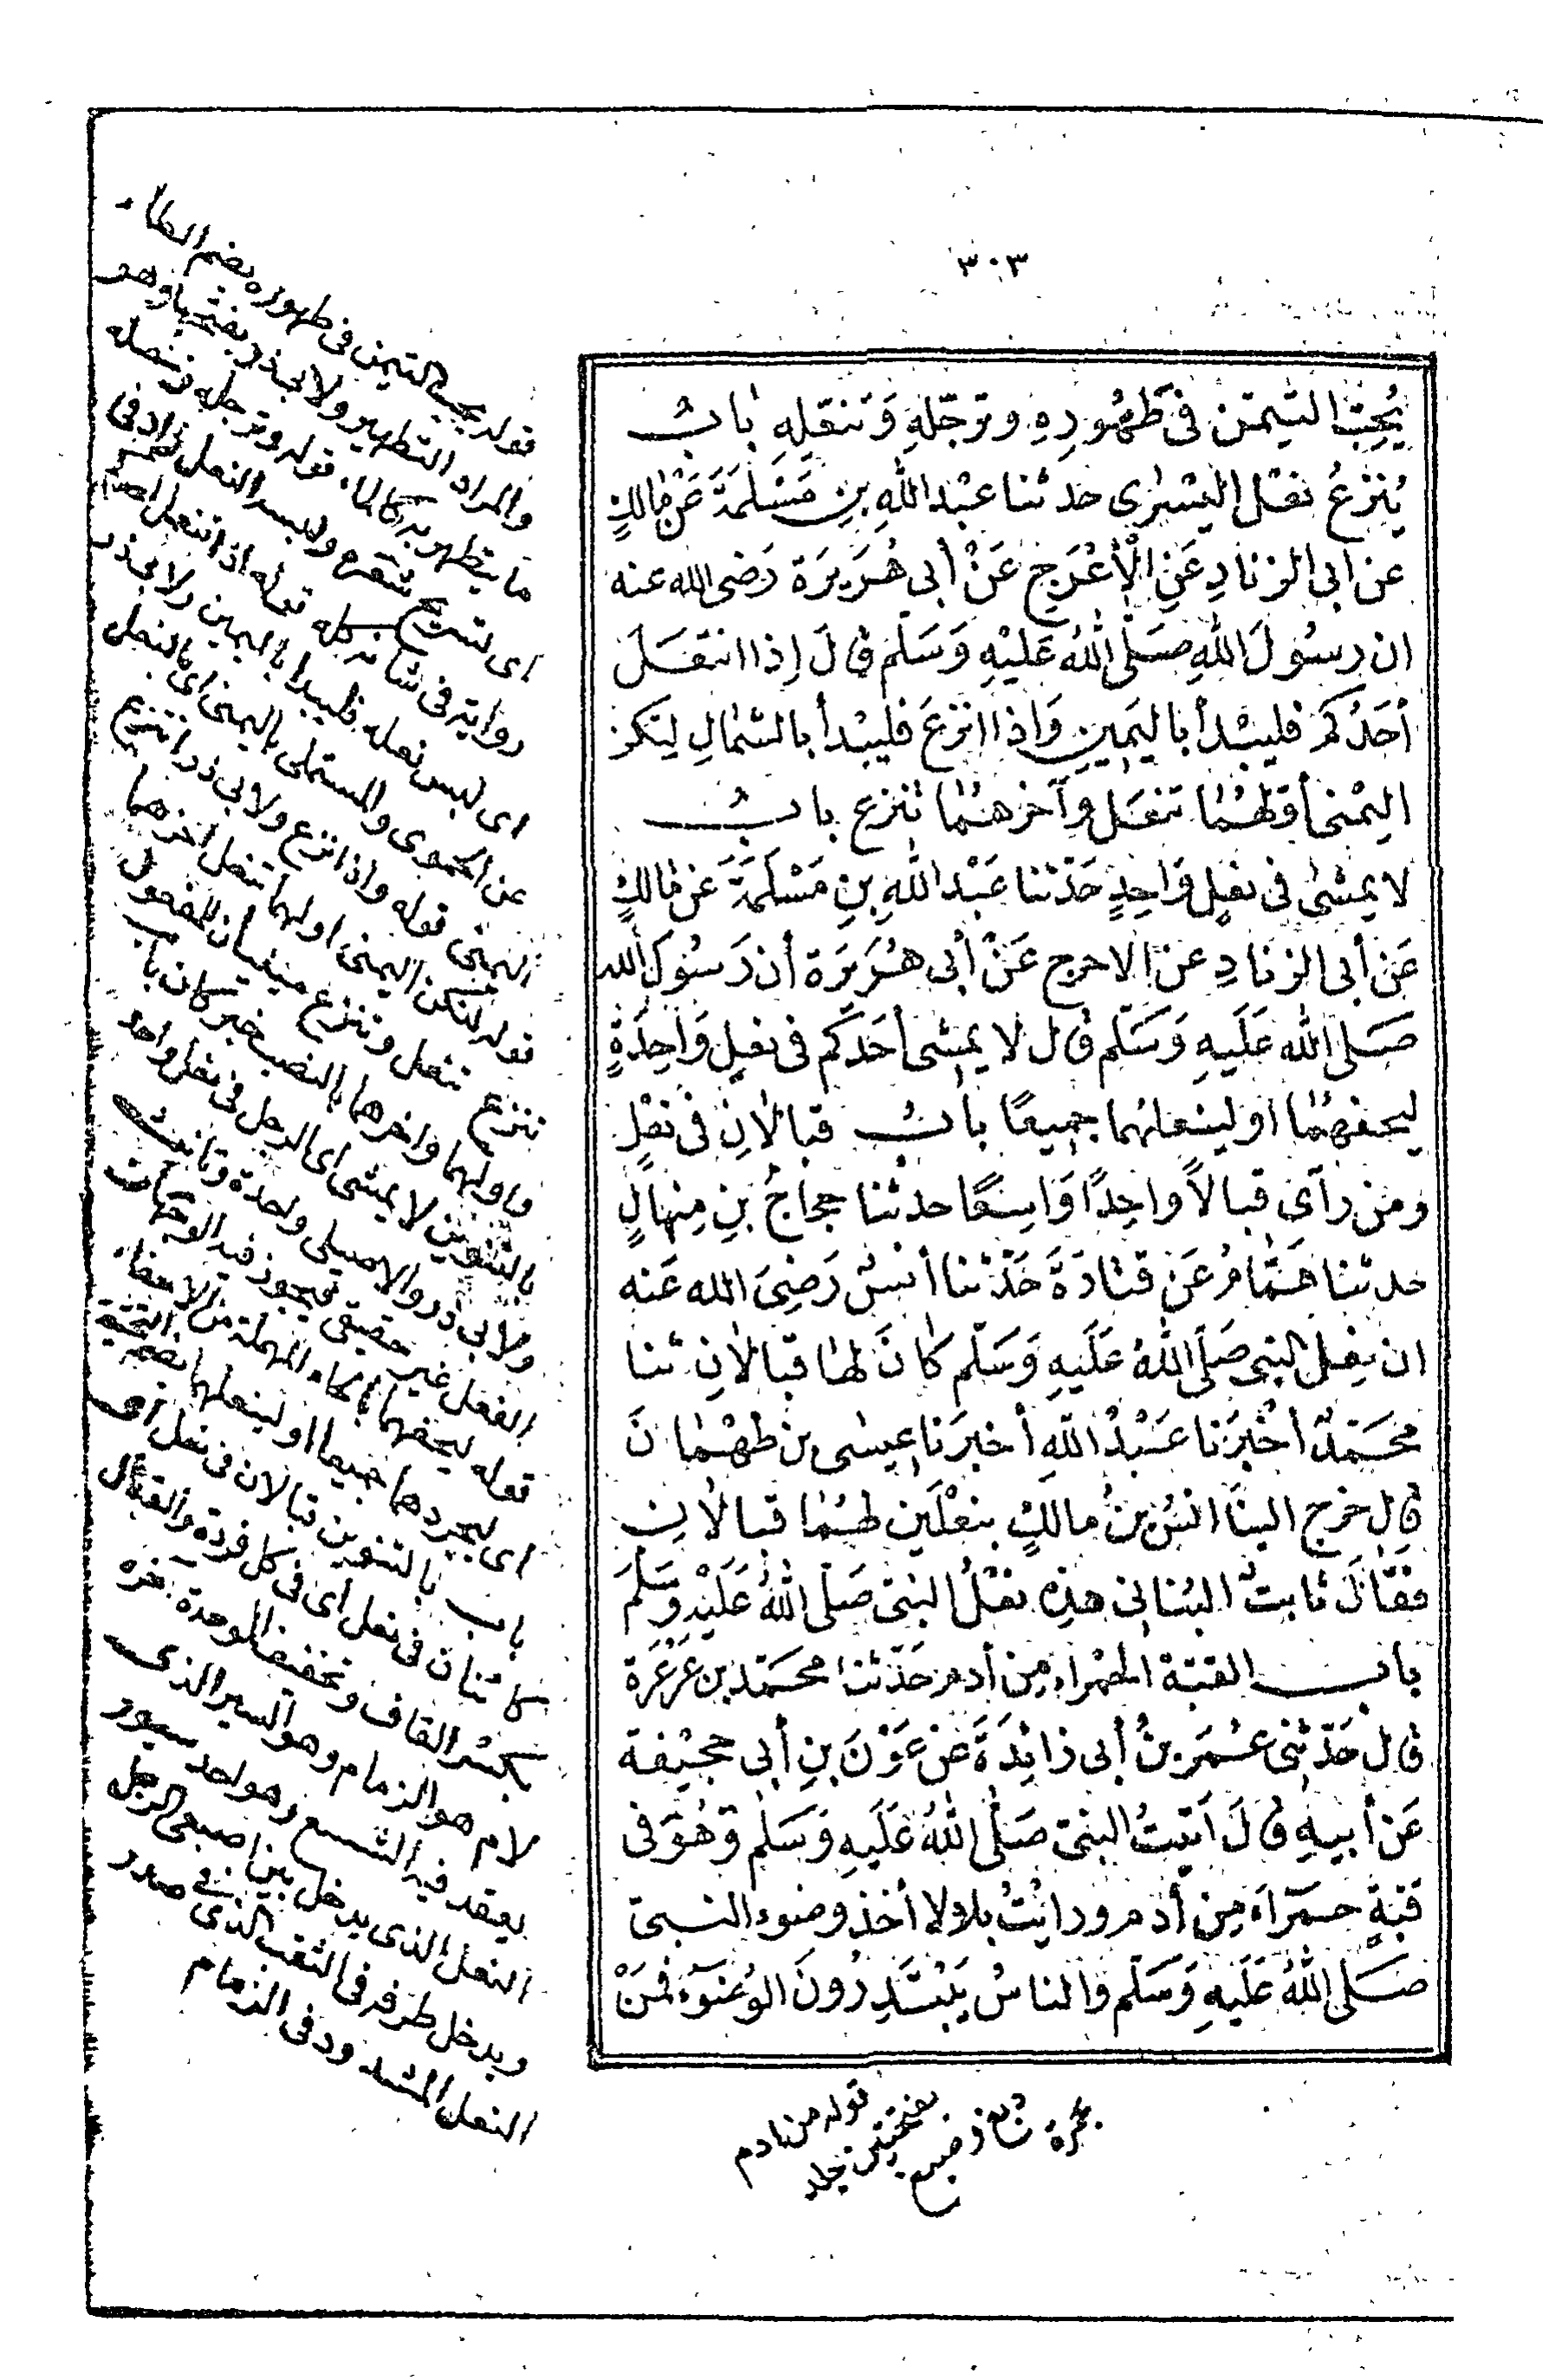 ٣٠٣
يُحِبُّ التَّيَمُّنَ فِى طُهُورِهِ وتَرَجُّلِهِ وَتَنَعُّلِهِ بَابُ
يُنْزَعُ نَعْلُ اليُسْرٰى حدثنا عَبْدُ اللّٰهِ بنِ مَسْلَمَةَ عَنْ مٰالِكٍ
عن ابى الزنادِ عَنِ الْأَعْرَجِ عَنْ أَبى هُرَيرَة رَضى الله عنه
ان رسُولَ اللّٰهِ صَلَّى اللّٰهُ عَلَيْهِ وَسَلَّم قالَ إِذا انتعَلَ
أَحَدُكم فليَبْدأ باليَمِينِ وَاذا انتزعَ فليَبْدأ بالشمالِ لِتَكن
اليُمْنىٰ أوّلهُمٰا تنعَل وآخرهُمٰا تنزع بابُ
لا يمشى فى نعلٍ وَاحِدٍ حَدّثنا عَبْد اللّٰهِ بنِ مَسْلَمَةَ عَن مٰالِكٍ
عَن أبى الزنادِ عن الاعرج عَنْ أبى هُرَيرَة أن رَسُولَ الله
صَلى الله عَلَيهِ وَسَلّم قال لا يمشى أحَدكم فى نعلٍ وَاحِدَةٍ
ليحفهُمٰا او لينعلهُما جميعًا بابُ قبالانِ فى نعْلٍ
ومَن رآى قبالاً واحِدًا وَاسِعًا حدثنا حجاجُ بنِ مِنهالٍ
حدثنا هَمّامُ عَن قتادَةَ حَدّثنا أنسُ رَضِىَ الله عَنه
ان نعل النبى صَلّى اللّٰهُ عَلَيهِ وَسَلّم كانَ لها قبالانِ ثنا
محَمّدٌ أخبرَنا عَبْدُ اللّٰهِ أخبرَنا عيسٰى بن طهْمٰانَ
قال خرج الينَا انسُ بنُ مالكٍ بنعْلَين لهُمٰا قبالانِ
فقَالَ ثابتٌ البُنانى هذِهِ نعْلُ النبىّ صَلّى اللّٰهُ عَلَيْهِ وسَلّمَ
بابُ القبّة الحَمْراء من أدم حَدّثنا محَمّد بن عَرْعَرة
قال حَدّثنى عمَر بنُ أبى زائِدَةَ عَن عَوْنَ بنِ أبى جحَيْفة
عَن أبيهِ قالَ أتيتُ النبىّ صَلّى اللّٰهُ عَلَيهِ وَسَلّم وَهُوَ فى
قبةٍ حَمرَآءَ مِن أدم ورايتُ بلالا أخذ وضوء النبىّ
صَلّى اللّٰهُ عَلَيهِ وَسَلّم والناسُ يَبْتَدِرُونَ الوُضوَءَ فمَنْ
قوله يحب التيمن فى طهوره بضم الطاء
والمراد التطهير ولابى ذر بفتحها وهو
ما يتطهر به كالماء قوله وترجله وتنعله
اى لبس نعله فليبدا باليمين ولابى ذر
عن الحموى والمستملى باليمنى اى بالنعل
اليمنى قوله واذا انتزع ولابى ذر انتزع
قوله لتكن اليمنى اولهما تنعل اخرهما
تنزع تنعل وتنزع مبنيان للمفعول
واولهما واخرهما بالنصب خبر كان باب
بالتنوين لا يمشى اى الرجل فى نعل واحد
ولابى ذر والاصيلى واحدة وتانيث
الفعل غير حقيقى فيجوز فيه الوجهان
قوله ليحفهما بالحاء المهملة من الاحفاء
اى ليجردهما جميعا او لينعلهما بضم التحتية
باب بالتنوين قبالان فى نعل اى
كائنان فى نعل اى فى كل فردة والقبال
بكسر القاف وتخفيف الموحدة آخره
لام هو الزمام وهو السير الذى
يعقد فيه الشسع وهو احد سيور
النعل الذى يدخل بين اصبعى الرجل
ويدخل طرفه فى الثقب الذى فى صدر
النعل المشدود فى الزمام
قوله من ادم
بفتحتين جلد